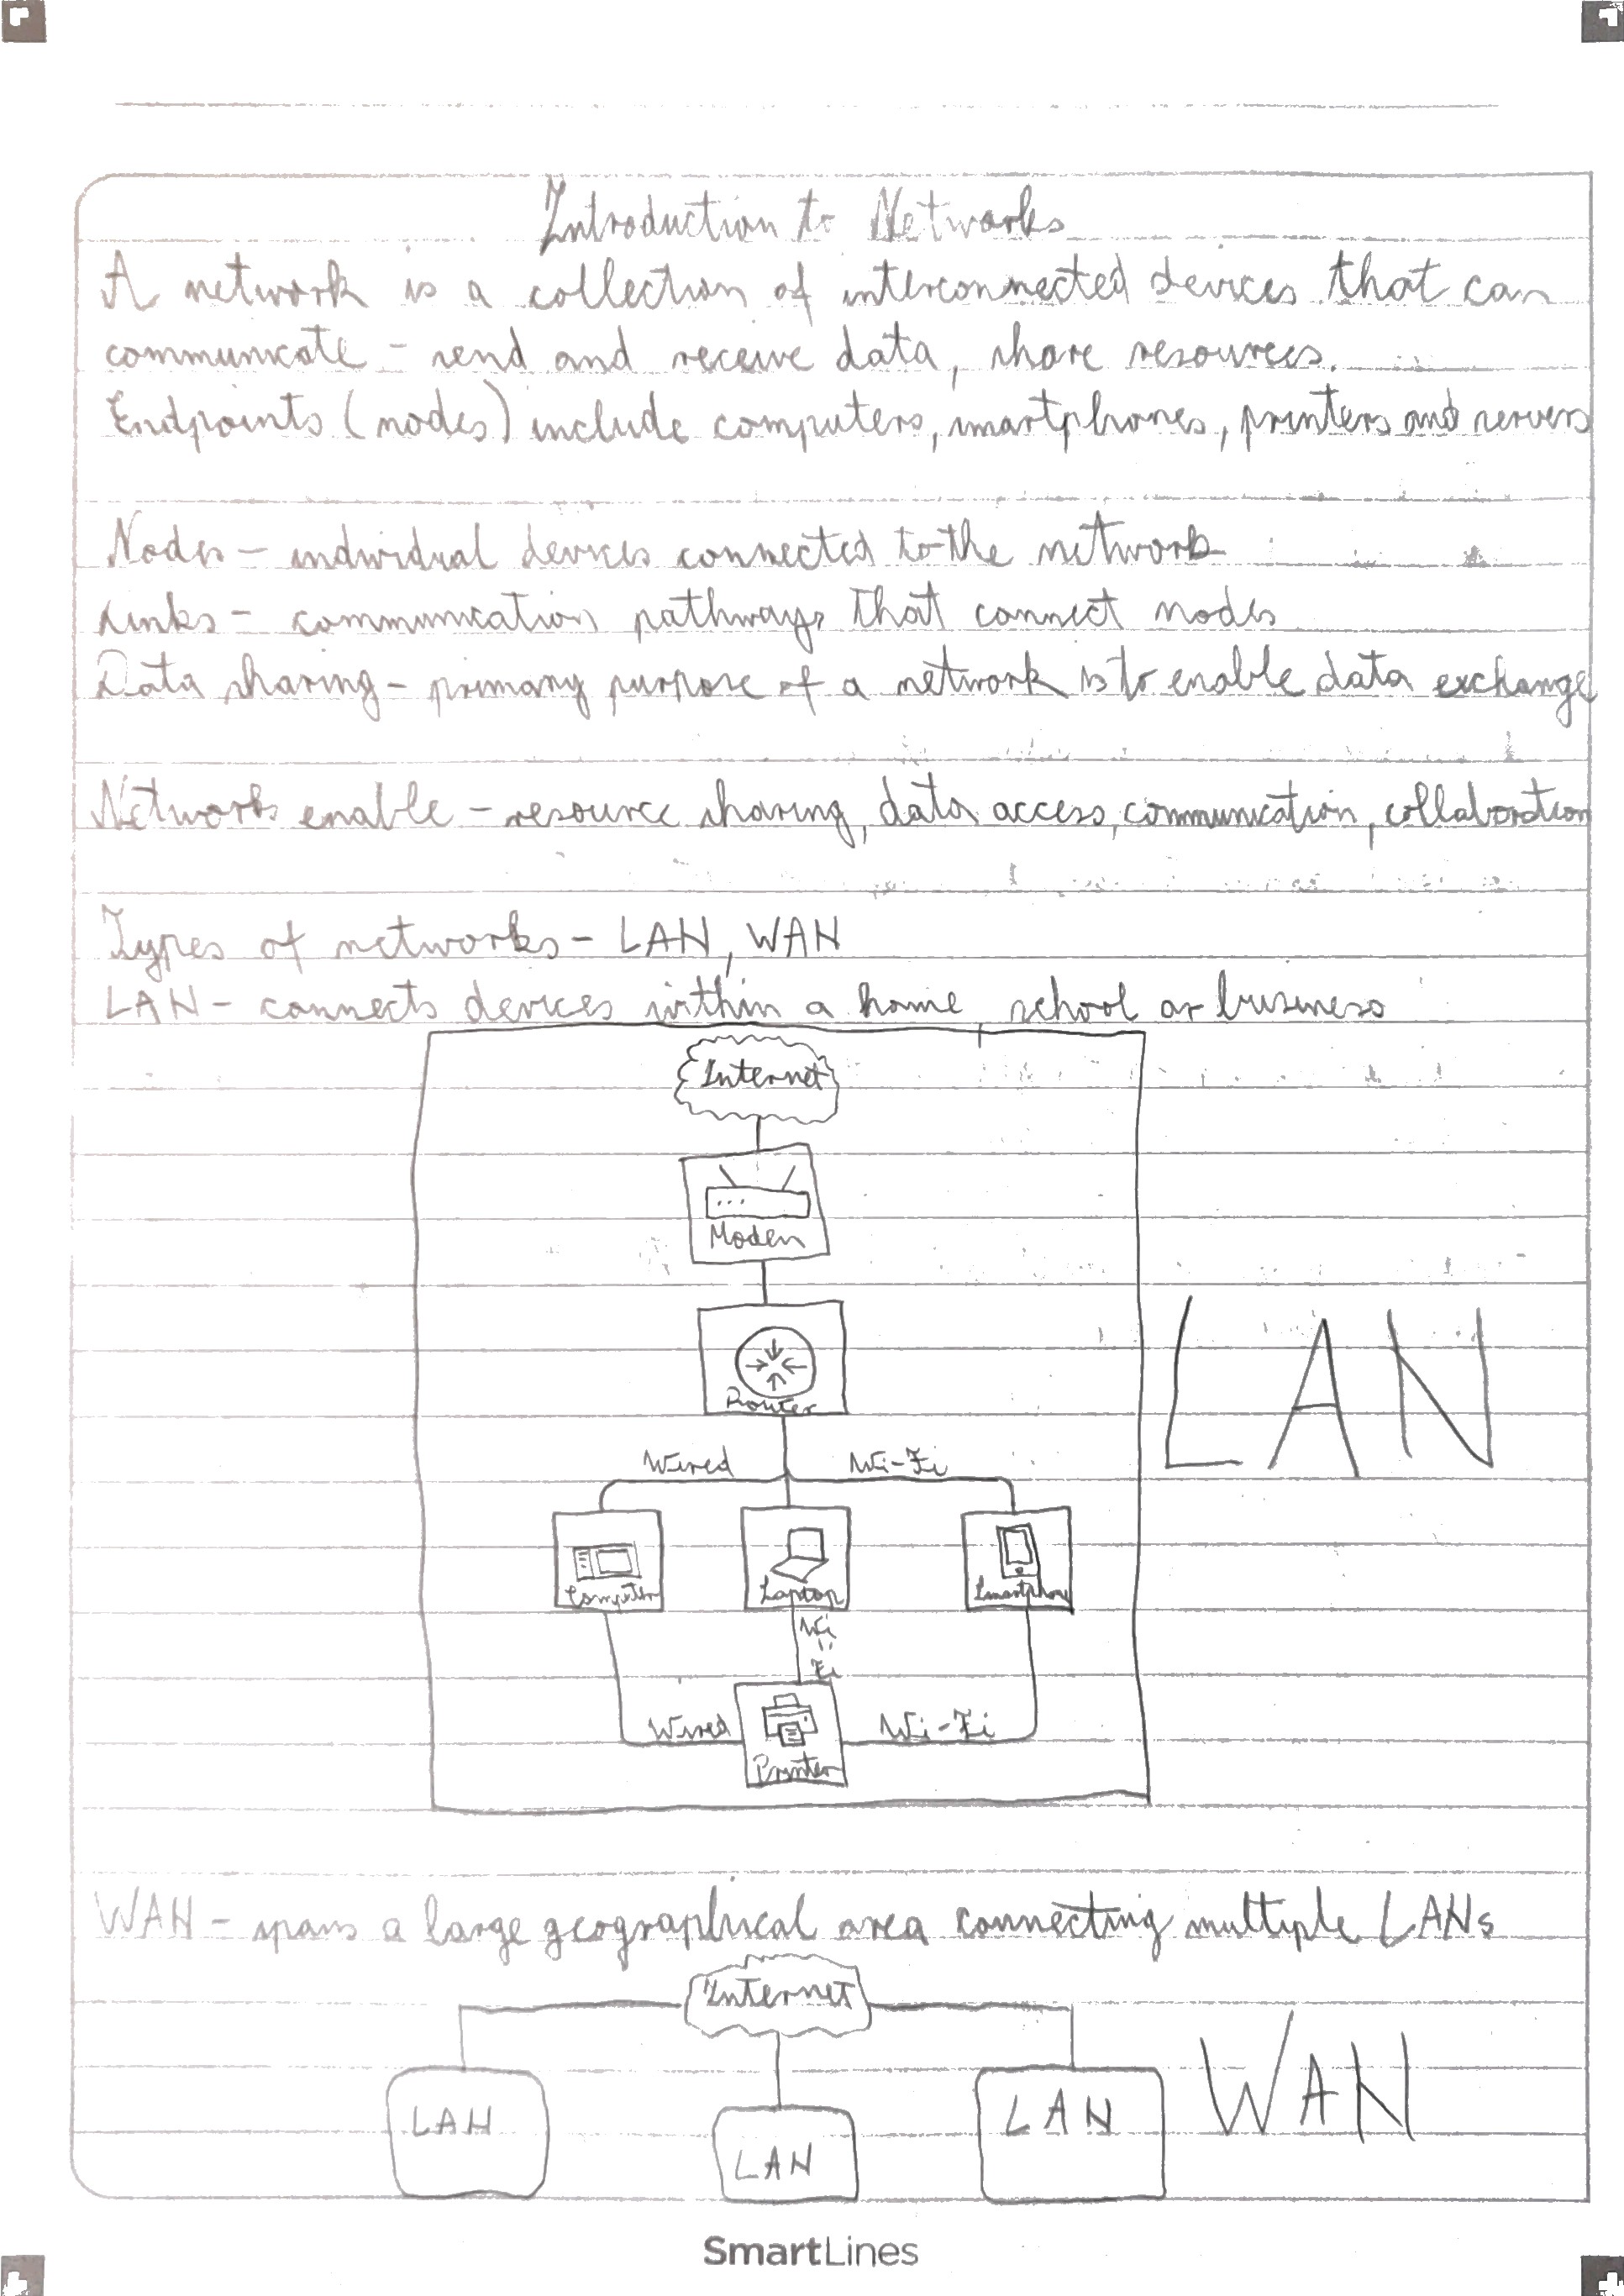 Introduction to Networks
A network is a collection of interconnected devices that can
communicate - send and receive data, share resources.
Endpoints (nodes) include computers, smartphones, printers and servers
Nodes - individual devices connected to the network
Links - communication pathways that connect nodes
Data sharing - primary purpose of a network is to enable data exchange
Networks enable - resource sharing, data access, communication, collaboration
Types of networks - LAN, WAN
LAN - connects devices within a home, school or business
Internet
Modem
Router
LAN
Wired Wi-Fi
Computer Laptop Smartphone
Wi-Fi
Wired Wi-Fi
Printer
WAN - spans a large geographical area connecting multiple LANs
Internet
WAN
LAN LAN LAN
SmartLines